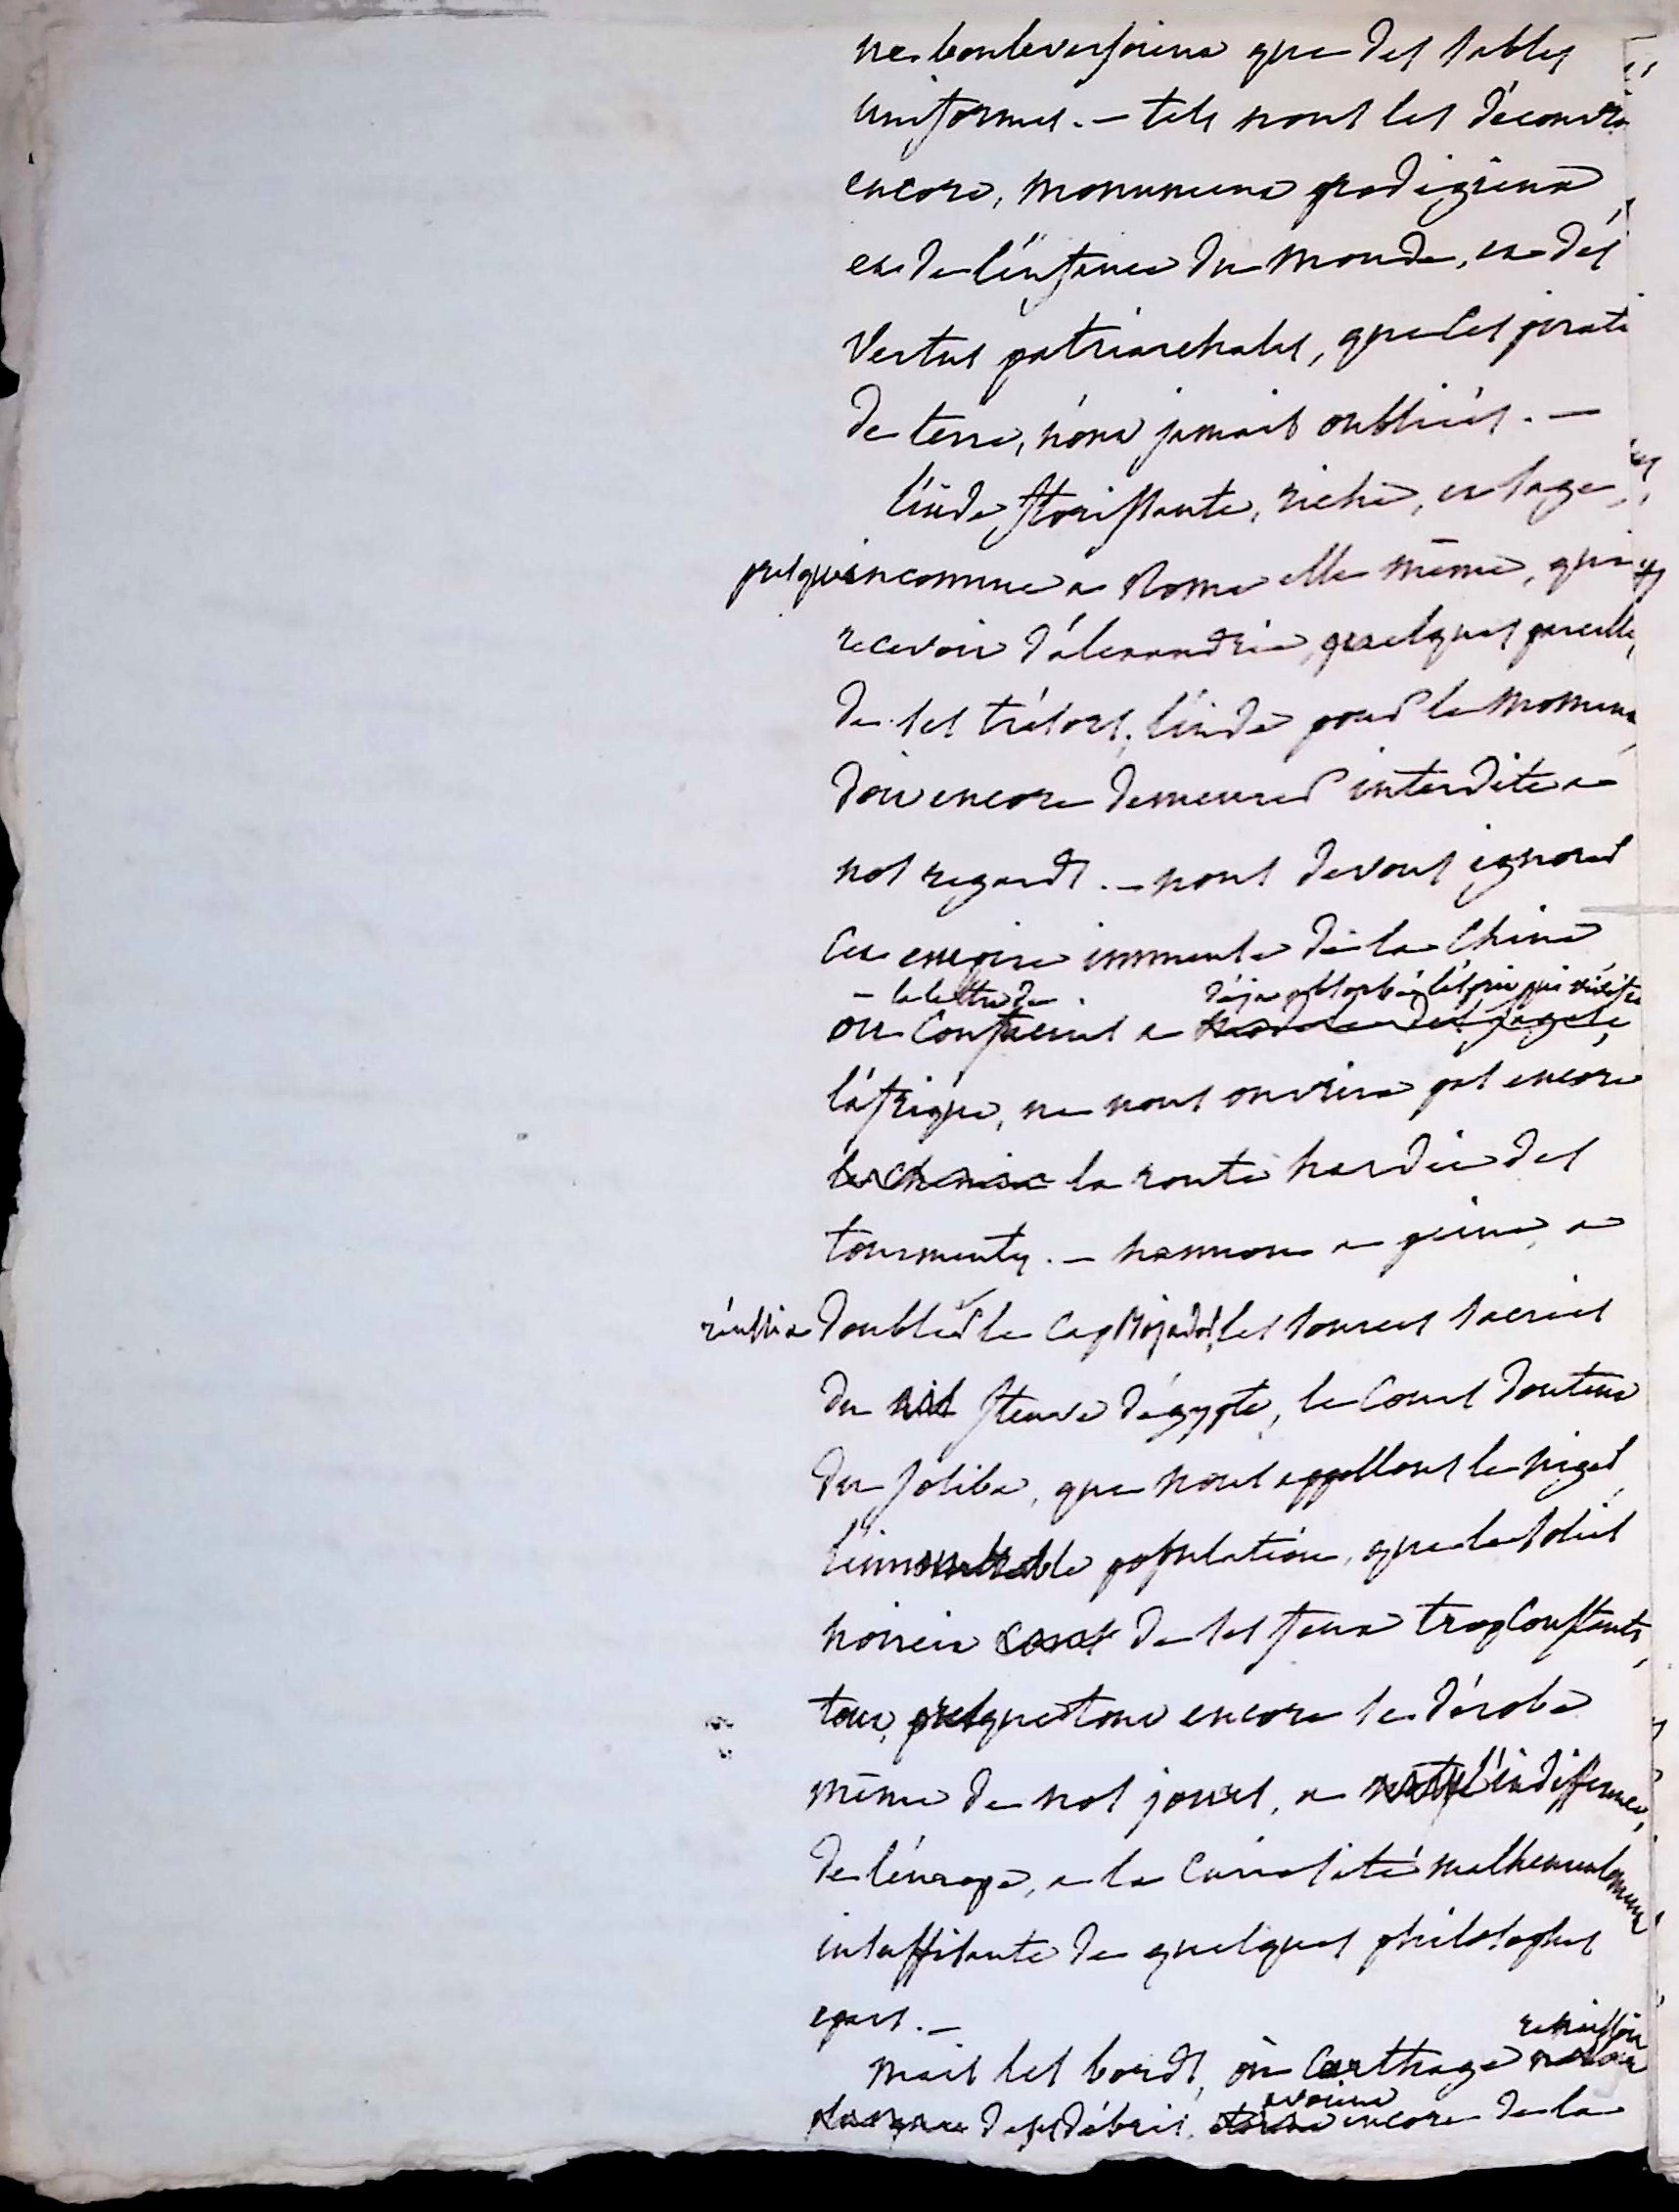 ne bouleversoient que des sables
uniformes. — tels nous les découvr
encore, monument prodigieux
et de l'enfance du monde, et des
vertus patriarchales, que les pirat
de terre, n'ont jamais oubliées. —
l'inde florissante, riche, et sage
presqu'inconnue a Rome elle même, qui
recevoit d'alexandrie, quelques parcelles
de ses trésors, l'inde pour le moment
doit encore demeurer interdite a
nos regards. — nous devons ignorer
cet empire immense de la Chine
— la lettre de . déja absorbé l'esprit qui
ou Confucius a
l'afrique, ne nous ouvrira pas encore
la route hardie des
tourmentes. — hannon a peine a
réussi a doubler le cap Bojador, les sources sacrées
du nil fleuve d'égypte, le cours douteux
du joliba, que nous appellons le niger
l'innombrable population, que le soleil
noircit de ses feux trop constants,
tout, presque tout encore se dérobe
même de nos jours, a l'indifférence,
de l'europe, a la curiosité malheureusement
insuffisante de quelques philosophes
epars. —
mais les bords, où Carthage renaissoit
de ses débris, avoient encore de la